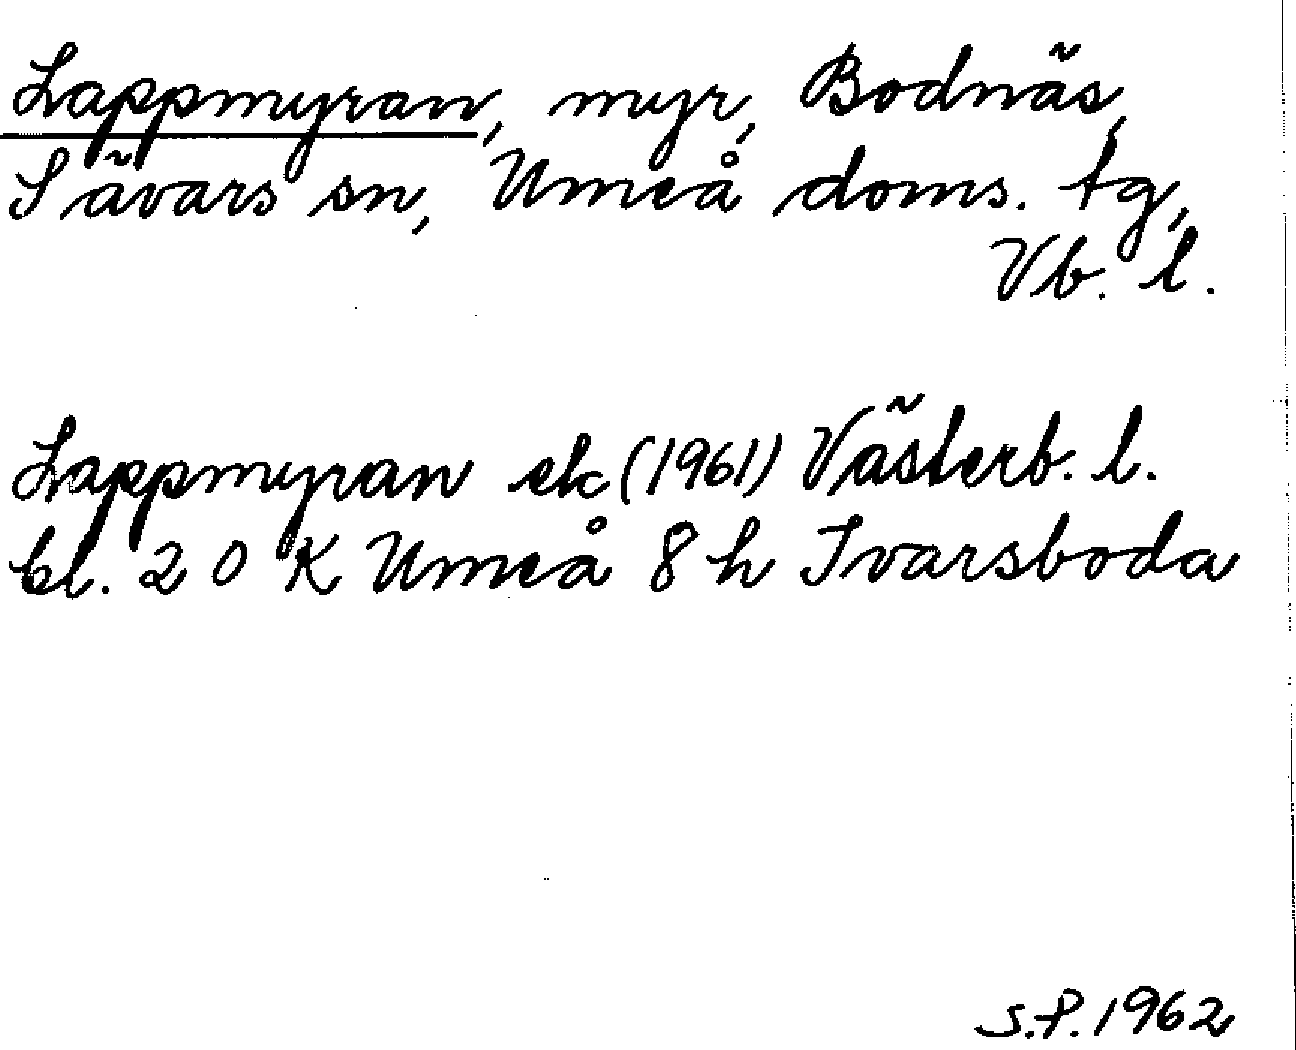 Lappmyran, myr, Bodnäs,
Sävars sn, Umeå doms. tg,
Vb. l.
Lappmyran ek (1961) Västerb. l.
bl. 20 K Umeå 8 h Ivarsboda
S.P. 1962